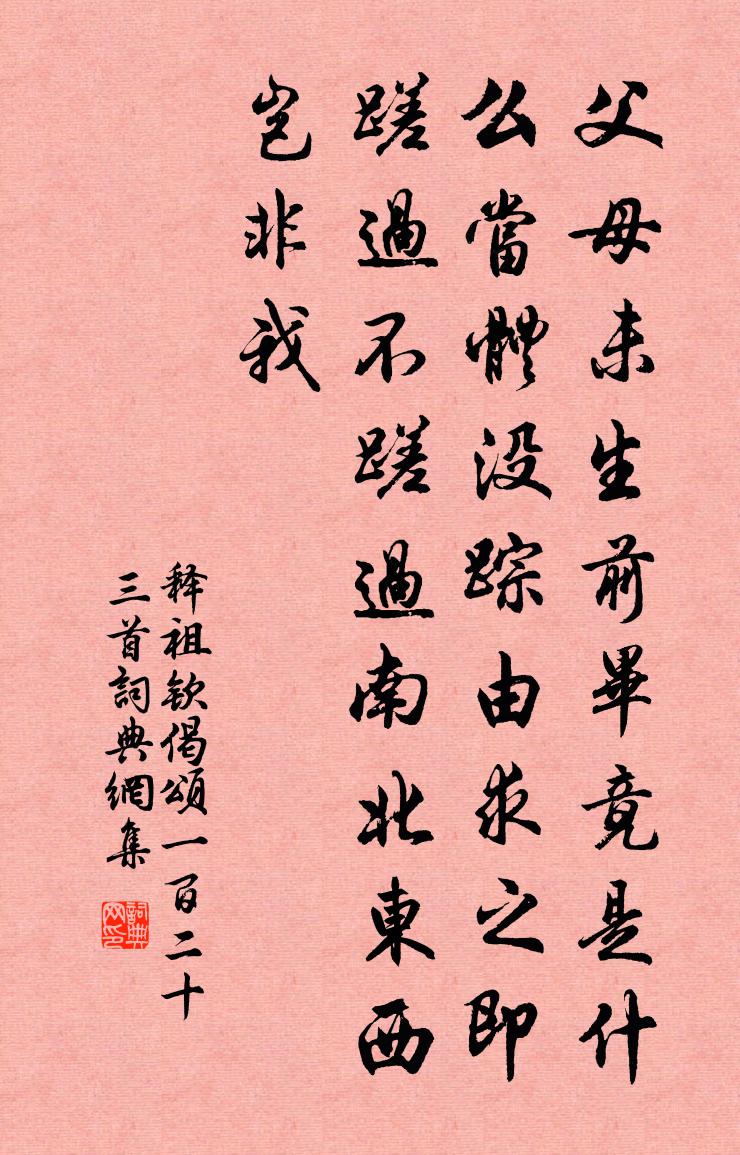 父母未生前畢竟是什
么當體没踪由求之即
蹉過不蹉過南北東西
豈非我
释祖钦偈頌一百二十
三首詞典網集
詞典
网印